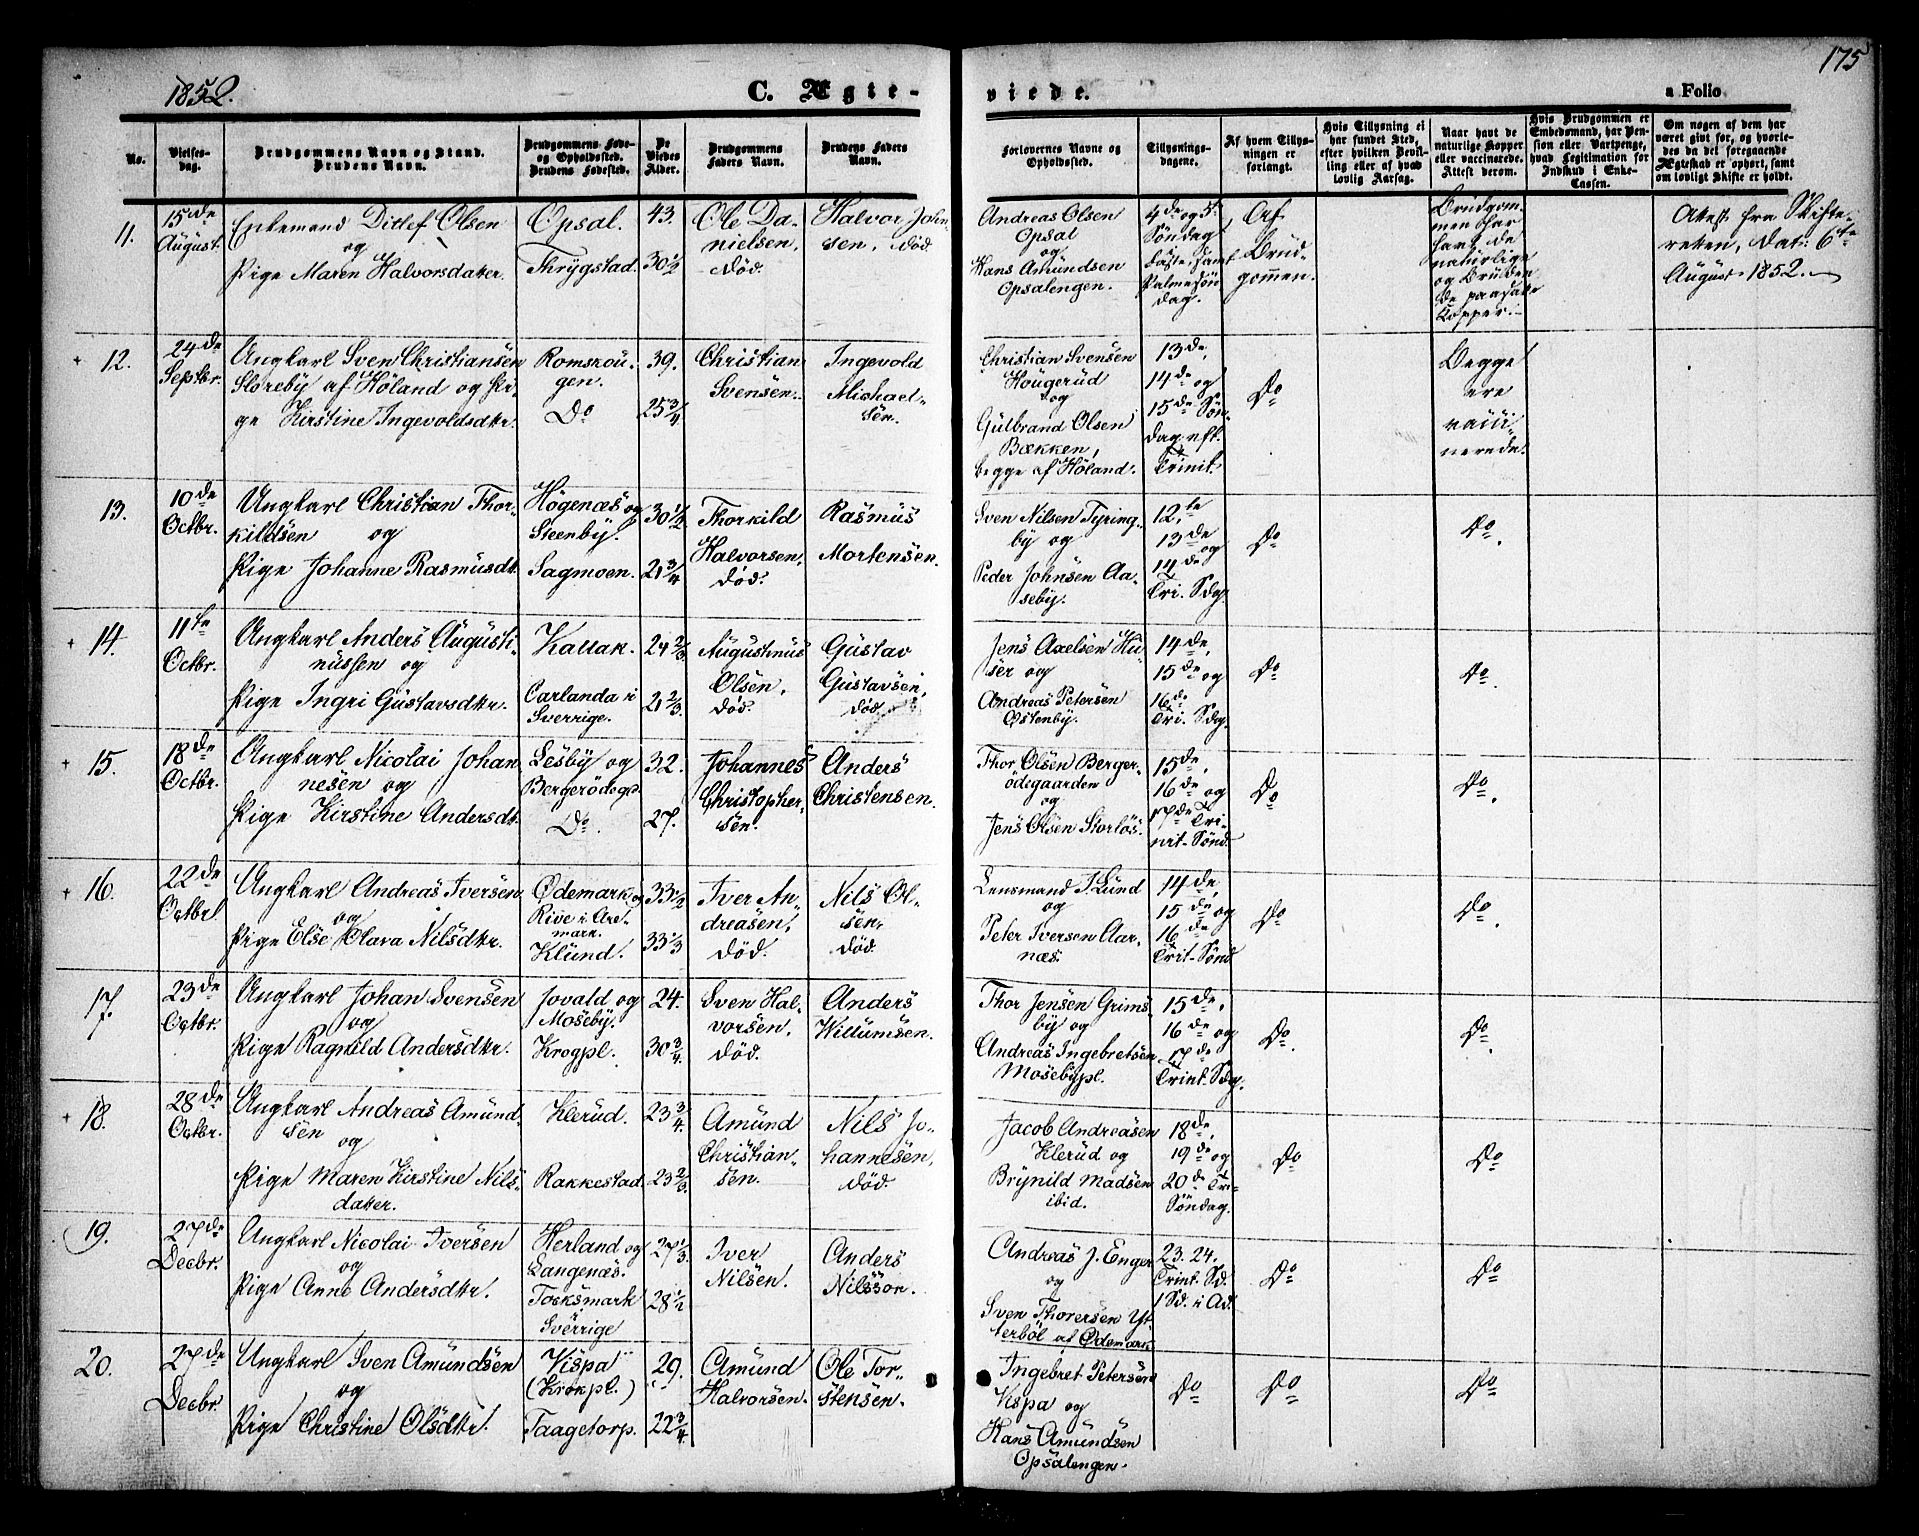 1852.
C. Ægte-
viede.
175
a Folio
No.
Vielses-
dag.
Brudgommens Navn og Stand.
Brudens Navn.
Brudgommens Føde-
og Opholdssted.
Brudens Fødested.
De
Viedes
Alder.
Brudgommens
Faders Navn.
Brudens Faders
Navn.
Forlovernes Navne og
Opholdssted.
Tillysnings-
dagene.
Af hvem Tillys-
ningen er
forlangt.
Hvis Tillysning ei
har fundet Sted,
efter hvilken Bevil-
ling eller af hvad
lovlig Aarsag.
Naar havt de
naturlige Kopper
eller vaccinerede.
Attest derom.
Hvis Brudgommen er
Embedsmand, har Pen-
sion eller Vartpenge,
hvad Legitimation for
Indskud i Enke-
Cassen.
Om nogen af dem har
været gift før, og hvorle-
des da det foregaaende
Ægteskab er ophørt, samt
om lovligt Skifte er holdt.
11.
15de
August.
Enkemand Ditlef Olsen
og
Pige Maren Halvorsdatter.
Opsal.
Thrygstad.
43.
30 1/2
Ole Da-
nielsen,
død.
Halvor John-
sen, død
Andreas Olsen
Opsal
og
Hans Amundsen
Opsalengen.
4de og 5te
Søndag i
Faste, samt
Palmesøn-
dag.
Af
Brud-
gommen.
Brudgom-
men har
havt de
naturlige
og Bruden
de paasatte
Kopper.
Attest fra Skifte-
retten, dat: 6te
August 1852.
12.
24de
Septbr.
Ungkarl Sven Christiansen
Storeby af Höland og Pi-
ge Kirstine Ingevoldsdtr.
Romskou-
gen.
Do
39.
25 3/4
Christian
Svensen.
Ingevold
Michael-
sen.
Christian Svensen
Hougerud
og
Gulbrand Olsen
Bækken,
begge af Höland.
13de,
14de og
15de Søn-
dag eft.
Trinit.
Do
Begge
ere
vacci-
nerede.
13.
10de
Octbr.
Ungkarl Christian Thor-
kildsen og
Pige Johanne Rasmusdtr.
Högenæs og
Steenby.
Sagmoen.
30 1/2
21 3/4
Thorkild
Halvorsen,
død.
Rasmus
Mortensen.
Sven Nilsen Tyring-
by og
Peder Johnsen Aa-
seby.
12te
13de
14de og
Tri. Sdg.
Do
Do.
14.
11te
Octbr.
Ungkarl Anders Augusti-
nussen og
Pige Ingri Gustavsdtr.
Kallak.
Carlanda i
Sverrige.
24 2/3
21 2/3
Augustinus
Olsen,
død.
Gustav
Gustavsen,
død.
Jens Axelsen Hu-
ser og
Andreas Petersen
Østenby.
14de,
15de og
16de
Tri. Sdg.
Do
Do.
15.
18de
Octbr.
Ungkarl Nicolai Johan-
nesen og
Pige Kirstine Andersdtr.
Lesby og
Bergerödegd
Do.
32.
27.
Johannes
Christopher-
sen.
Anders
Christensen.
Thor Olsen Berger-
ödegaarden
og
Jens Olsen Storlös.
15de,
16de og
17de Tri-
nit. Sönd.
Do
Do.
16.
22de
Octbr.
Ungkarl Andreas Iversen
og
Pige Else Clara Nilsdtr.
Ødemark og
Rive i Are-
mark.
Klund.
33 1/2
33 1/3
Iver An-
dreasen,
død.
Nils Ol-
sen,
død.
Lensmand J. Lund
og
Peter Iversen Aar-
næs.
14de,
15de og
16de
Trit. Sönd
Do
Do.
17.
23de
Octbr.
Ungkarl Johan Svensen
og
Pige Ragnild Andersdtr.
Jovald og
Moseby.
Krogpl.
24.
30 3/4.
Sven Hal-
vorsen,
død.
Anders
Willumsen.
Thor Jensen Grims-
by og
Andreas Ingebretsen
Mosebypl.
15de,
16de og
17de
Trint. Sdg.
Do.
Do.
18.
28de
Octbr.
Ungkarl Andreas Amund-
sen
og
Pige Maren Kirstine Nils-
datter.
Klerud.
Rakkestad.
23 3/4.
23 2/3.
Amund
Christian-
sen.
Nils Jo-
hannesen,
død.
Jacob Andreasen
Klerud og
Brynild Madsen
ibid.
18de,
19de og
20de Tri-
Söndag.
Do
Do
19.
27de
Decbr.
Ungkarl Nicolai Iversen
og
Pige Anne Andersdtr.
Herland og
Langenæs.
Tocksmark
Sverrige
27 1/3.
28 1/2
Iver
Nilsen.
Anders
Nilsson.
Andreas J. Enger
og
Sven Thorersen Yt-
terböl af Ødemark
23. 24.
Trint. Sd.
1 Sd. i Ad.
Do
Do
20.
27de
Decbr.
Ungkarl Sven Amundsen
og
Pige Christine Olsdtr.
Vispa
(Krokpl.)
Taagetorp.
29.
22 3/4.
Amund
Halvorsen.
Ole Tor-
stensen.
Ingebret Petersen
Vispa og
Hans Amundsen
Opsalengen.
Do
Do
Do